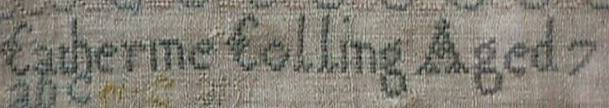 Catherine Colling Aged 7